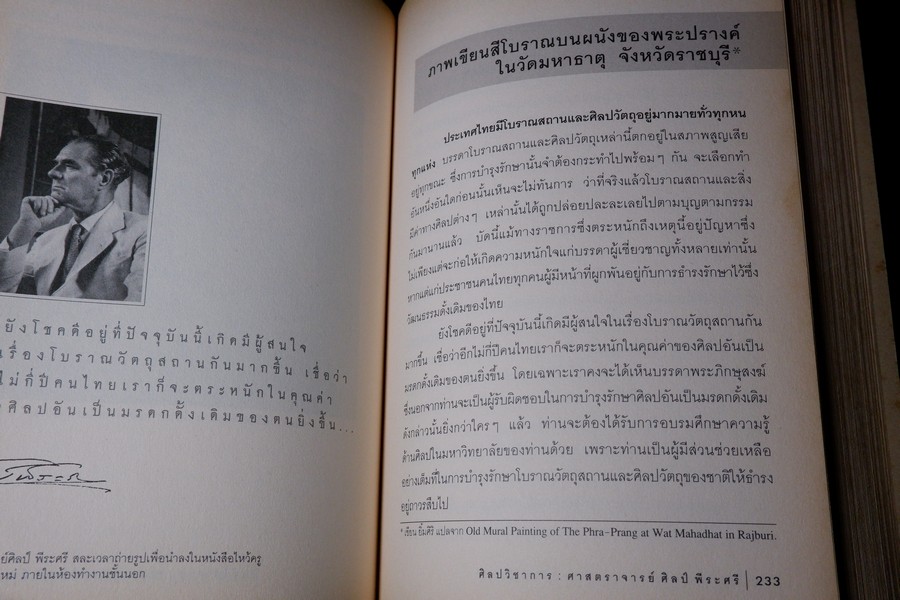 ยังโชคดีอยู่ที่ปัจจุบันนี้เกิดมีผู้สนใจ
เรื่องโบราณวัตถุสถานกันมากขึ้น เชื่อว่า
ไม่กี่ปีคนไทยเราก็จะตระหนักในคุณค่า
ศิลปอันเป็นมรดกดั้งเดิมของตนยิ่งขึ้น...
ศิลป์ พีระศรี สละเวลาถ่ายรูปเพื่อนำลงในหนังสือไหว้ครู
ภายในห้องทำงานชั้นนอก
ภาพเขียนสีโบราณบนผนังของพระปรางค์
ในวัดมหาธาตุ จังหวัดราชบุรี*
ประเทศไทยมีโบราณสถานและศิลปวัตถุอยู่มากมายทั่วทุกหน
ทุกแห่ง บรรดาโบราณสถานและศิลปวัตถุเหล่านี้ตกอยู่ในสภาพสูญเสีย
อยู่ทุกขณะ ซึ่งการบำรุงรักษานั้นจำต้องกระทำไปพร้อมๆ กัน จะเลือกทำ
อันหนึ่งอันใดก่อนนั้นเห็นจะไม่ทันการ ว่าที่จริงแล้วโบราณสถานและสิ่ง
มีค่าทางศิลปต่างๆ เหล่านั้นได้ถูกปล่อยปละละเลยไปตามบุญตามกรรม
กันมานานแล้ว บัดนี้แม้ทางราชการซึ่งตระหนักถึงเหตุนี้อยู่ปัญหาซึ่ง
ไม่เพียงแต่จะก่อให้เกิดความหนักใจแก่บรรดาผู้เชี่ยวชาญทั้งหลายเท่านั้น
หากแต่แก่ประชาชนคนไทยทุกคนผู้มีหน้าที่ผูกพันอยู่กับการธำรงรักษาไว้ซึ่ง
วัฒนธรรมดั้งเดิมของไทย
ยังโชคดีอยู่ที่ปัจจุบันนี้เกิดมีผู้สนใจในเรื่องโบราณวัตถุสถานกัน
มากขึ้น เชื่อว่าอีกไม่กี่ปีคนไทยเราก็จะตระหนักในคุณค่าของศิลปอันเป็น
มรดกดั้งเดิมของตนยิ่งขึ้น โดยเฉพาะเราคงจะได้เห็นบรรดาพระภิกษุสงฆ์
ซึ่งนอกจากท่านจะเป็นผู้รับผิดชอบในการบำรุงรักษาศิลปอันเป็นมรดกดั้งเดิม
ดังกล่าวนั้นยิ่งกว่าใครๆ แล้ว ท่านจะต้องได้รับการอบรมศึกษาความรู้
ด้านศิลปในมหาวิทยาลัยของท่านด้วย เพราะท่านเป็นผู้มีส่วนช่วยเหลือ
อย่างเต็มที่ในการบำรุงรักษาโบราณวัตถุสถานและศิลปวัตถุของชาติให้ธำรง
อยู่ถาวรสืบไป
* เขียน ยิ้มศิริ แปลจาก Old Mural Painting of The Phra-Prang at Wat Mahadhat in Rajburi.
ศิลปวิชาการ : ศาสตราจารย์ ศิลป์ พีระศรี | 233